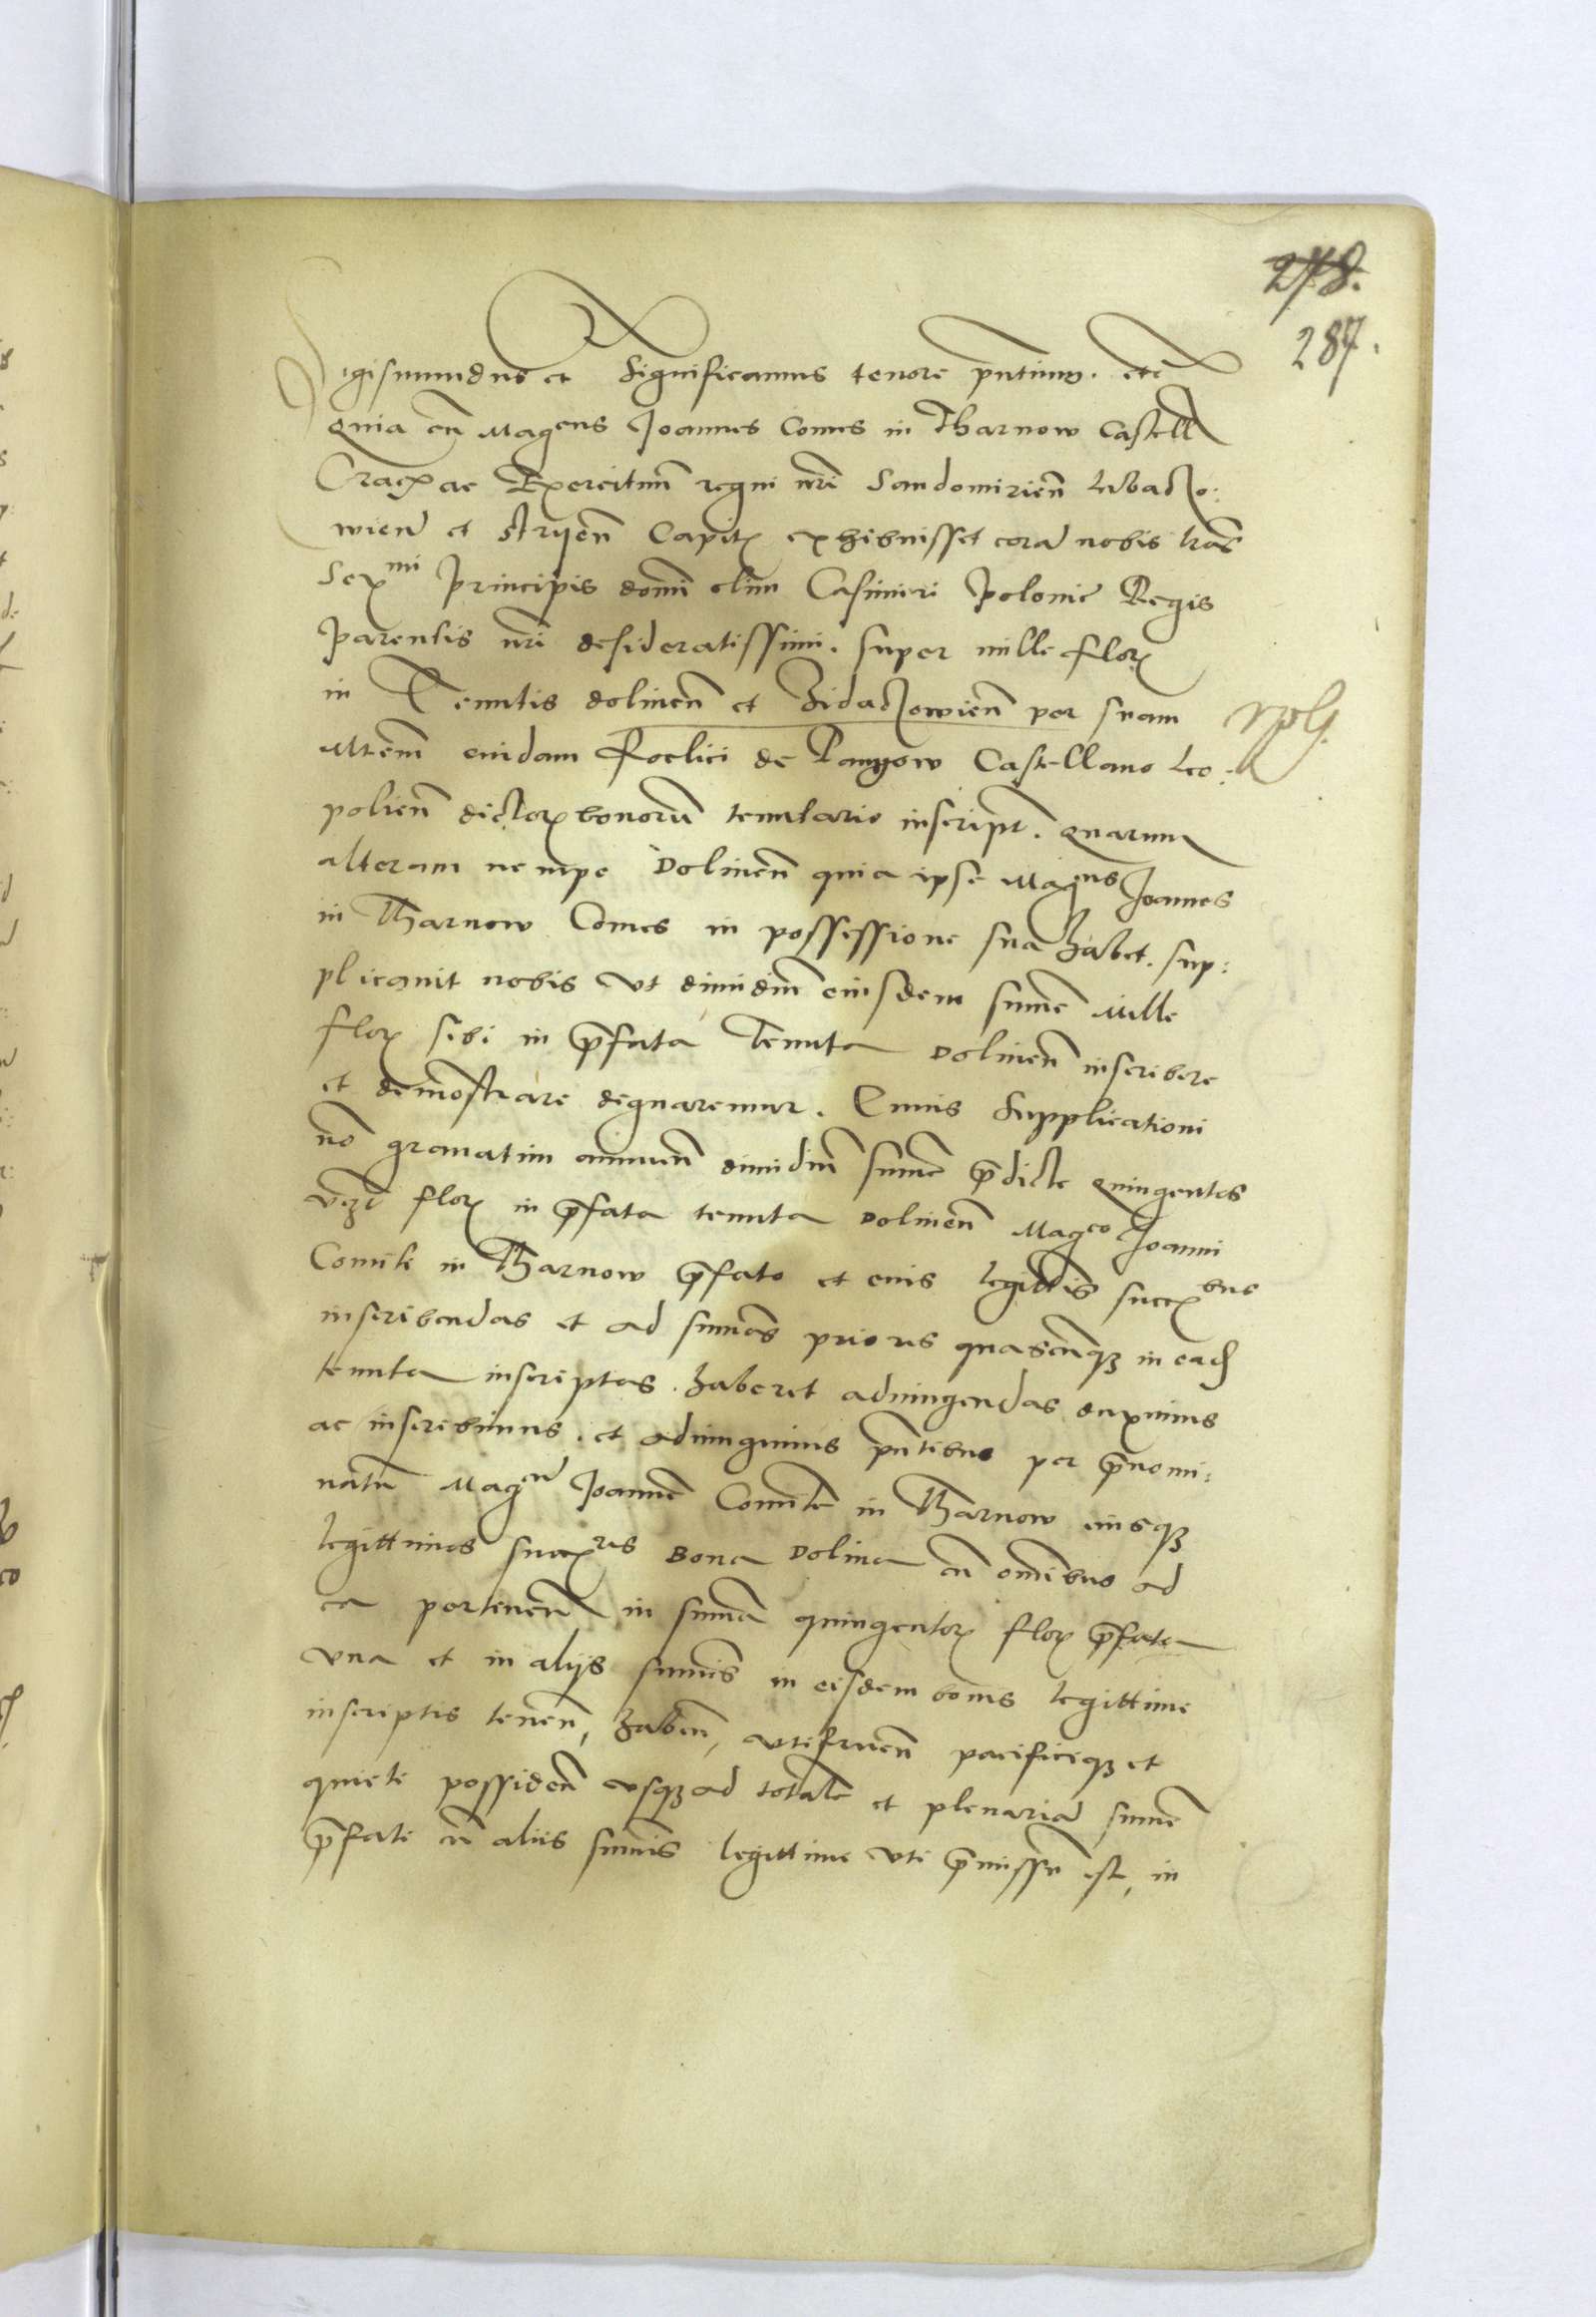 278.
287.
Sigismundus et Significamus tenore pntium. etc
Quia cu Magcus Joannes Comes in Tharnow Castell
Crac ac Exercituu regni nri Sandomirien Lubaczo:
wien et Stryen Capit exhibuisset cora nobis lras
Sermi Principis domi olim Casimiri Polonie Regis
Parentis nri desideratissimi. super mille flor
in Tenutis dolinen et Zidaczowien per suam
Mtem cuidam Foelici de Panyow Castellano Leo:
polien dictor bonoru tenutario inscript. quarum
alteram nempe Dolinen quia ipse Magcus Joannes
in Tharnow Comes in possessione sua habet. sup:
plicauit nobis vt dimidiu eiusdem sume Mille
flor sibi in pfata Tenuta Dolinen inscribere
et demostrare dignaremur. Cuius Supplicationi
no grauatim annuen dimidiu sume pdicte quingentos
vz flor in pfata tenuta Dolinen Magco Joanni
Comiti in Tharnow pfato et eius legittis succbus
inscribendas et ad sumas priores quascuqz in ead
tenuta inscriptas. haberet adiungendas duximus
ac inscribimus. et adiungimus pntibus per pnomi:
natu Magcu Joanne Comite in Tharnow eiusqz
legittimos succres Bona Dolina cu omibus ad
ea pertinen in suma quingentor flor pfata
vna et in alijs sumis in eisdem bonis legittime
inscriptis tenen, haben, vtifruen pacificeqz et
quiete possiden vsqz ad totale et plenaria sume
pfate cu aliis sumis legittime vti pmissu est, in